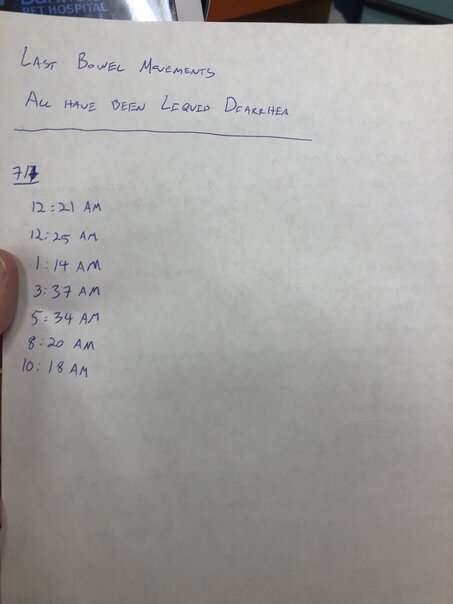 PET HOSPITAL
LAST BOWEL MOVEMENTS
ALL HAVE BEEN LIQUID DIARRHEA
12:21 AM
12:25 AM
1:14 AM
3:37 AM
5:34 AM
8:20 AM
10:18 AM